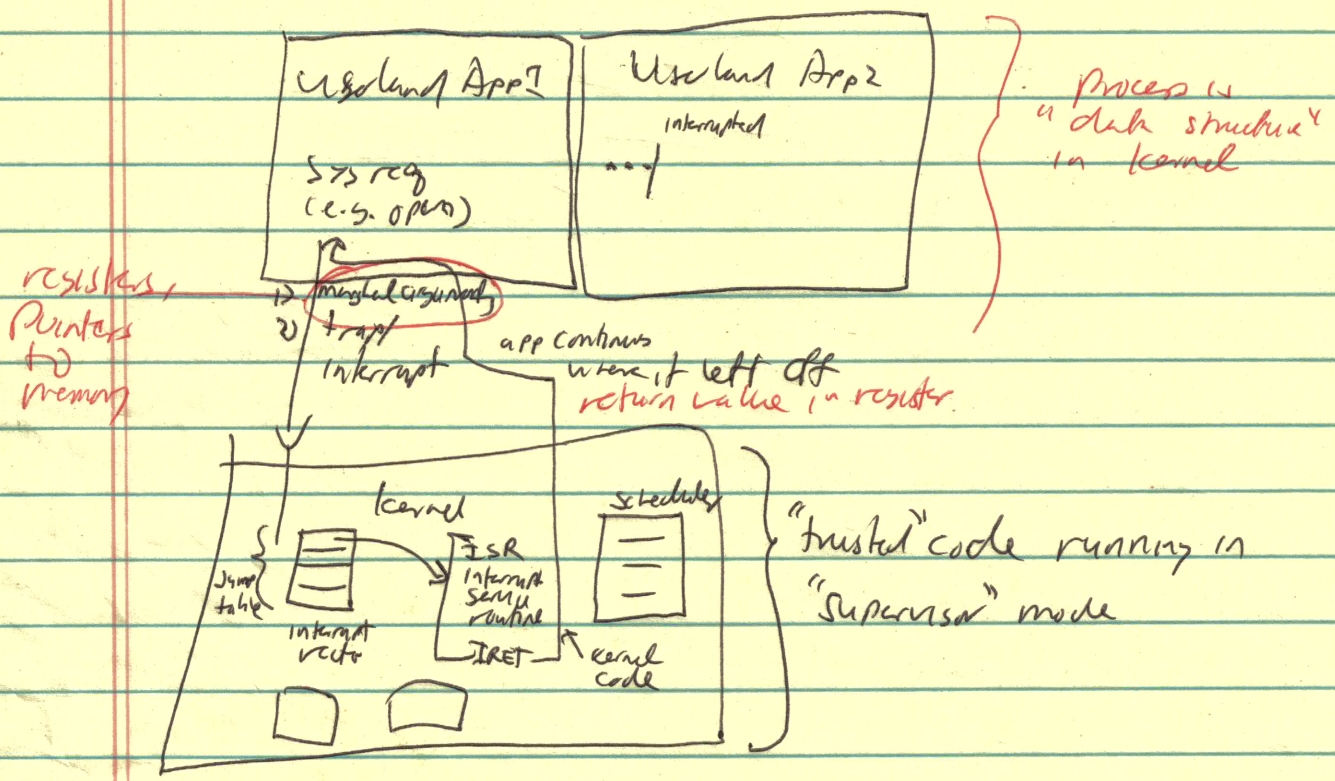 Userland App1
Userland App2
interrupted
Sys req
(e.g. open)
process is
"data structure"
in kernel
registers,
pointers
to
memory
1) marshal arguments
2) trap/
interrupt
app continues
where it left off
return value in register
kernel
scheduler
jump
table
interrupt
vector
ISR
interrupt
service
routine
IRET
kernel
code
"trusted" code running in
"supervisor" mode